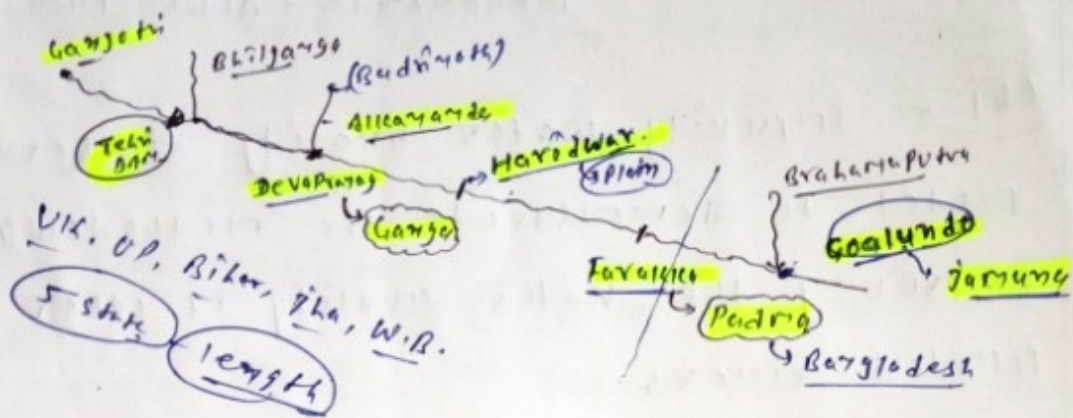 Gangotri
Bhilganga
(Badrinath)
Tehri
DAM
Alkananda
Devaprayag
Ganga
Haridwar.
Plain
Brahamaputra
Goalundo
Jamuna
Farakka
Padma
Bangladesh
UK, UP, Bihar, Jha, W.B.
5 State
length